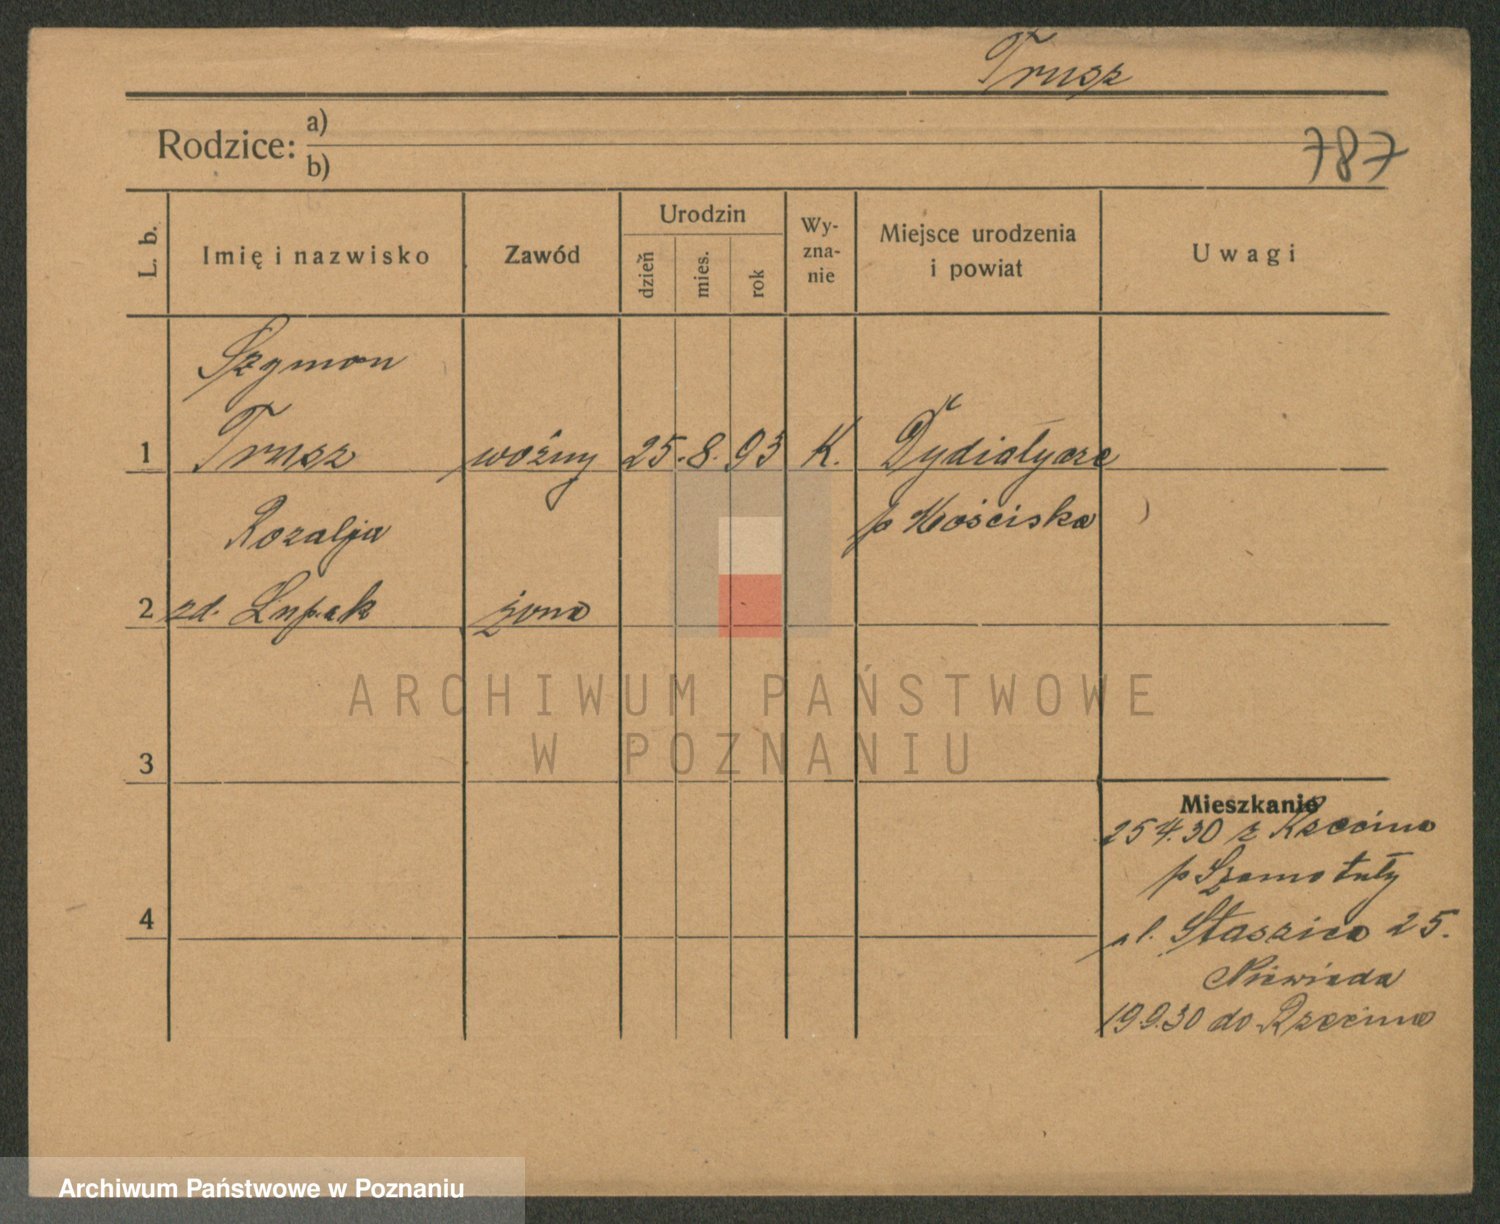 Trusz
Rodzice: a)
b)
787
L. b.
Imię i nazwisko
Zawód
Urodzin
dzień
mies.
rok
Wy-
zna-
nie
Miejsce urodzenia
i powiat
Uwagi
Szymon
1 Trusz woźny 25. 8. 93 K. Dydiatycze
p Mościska
Rozalja
2 zd. Łupak żona
3
4
Mieszkanie
25 4.30 z Rzecina
p Szamotuły
pl. Staszica 25.
Niewiada
19 9.30 do Rzecina
ARCHIWUM PAŃSTWOWE
W POZNANIU
Archiwum Państwowe w Poznaniu